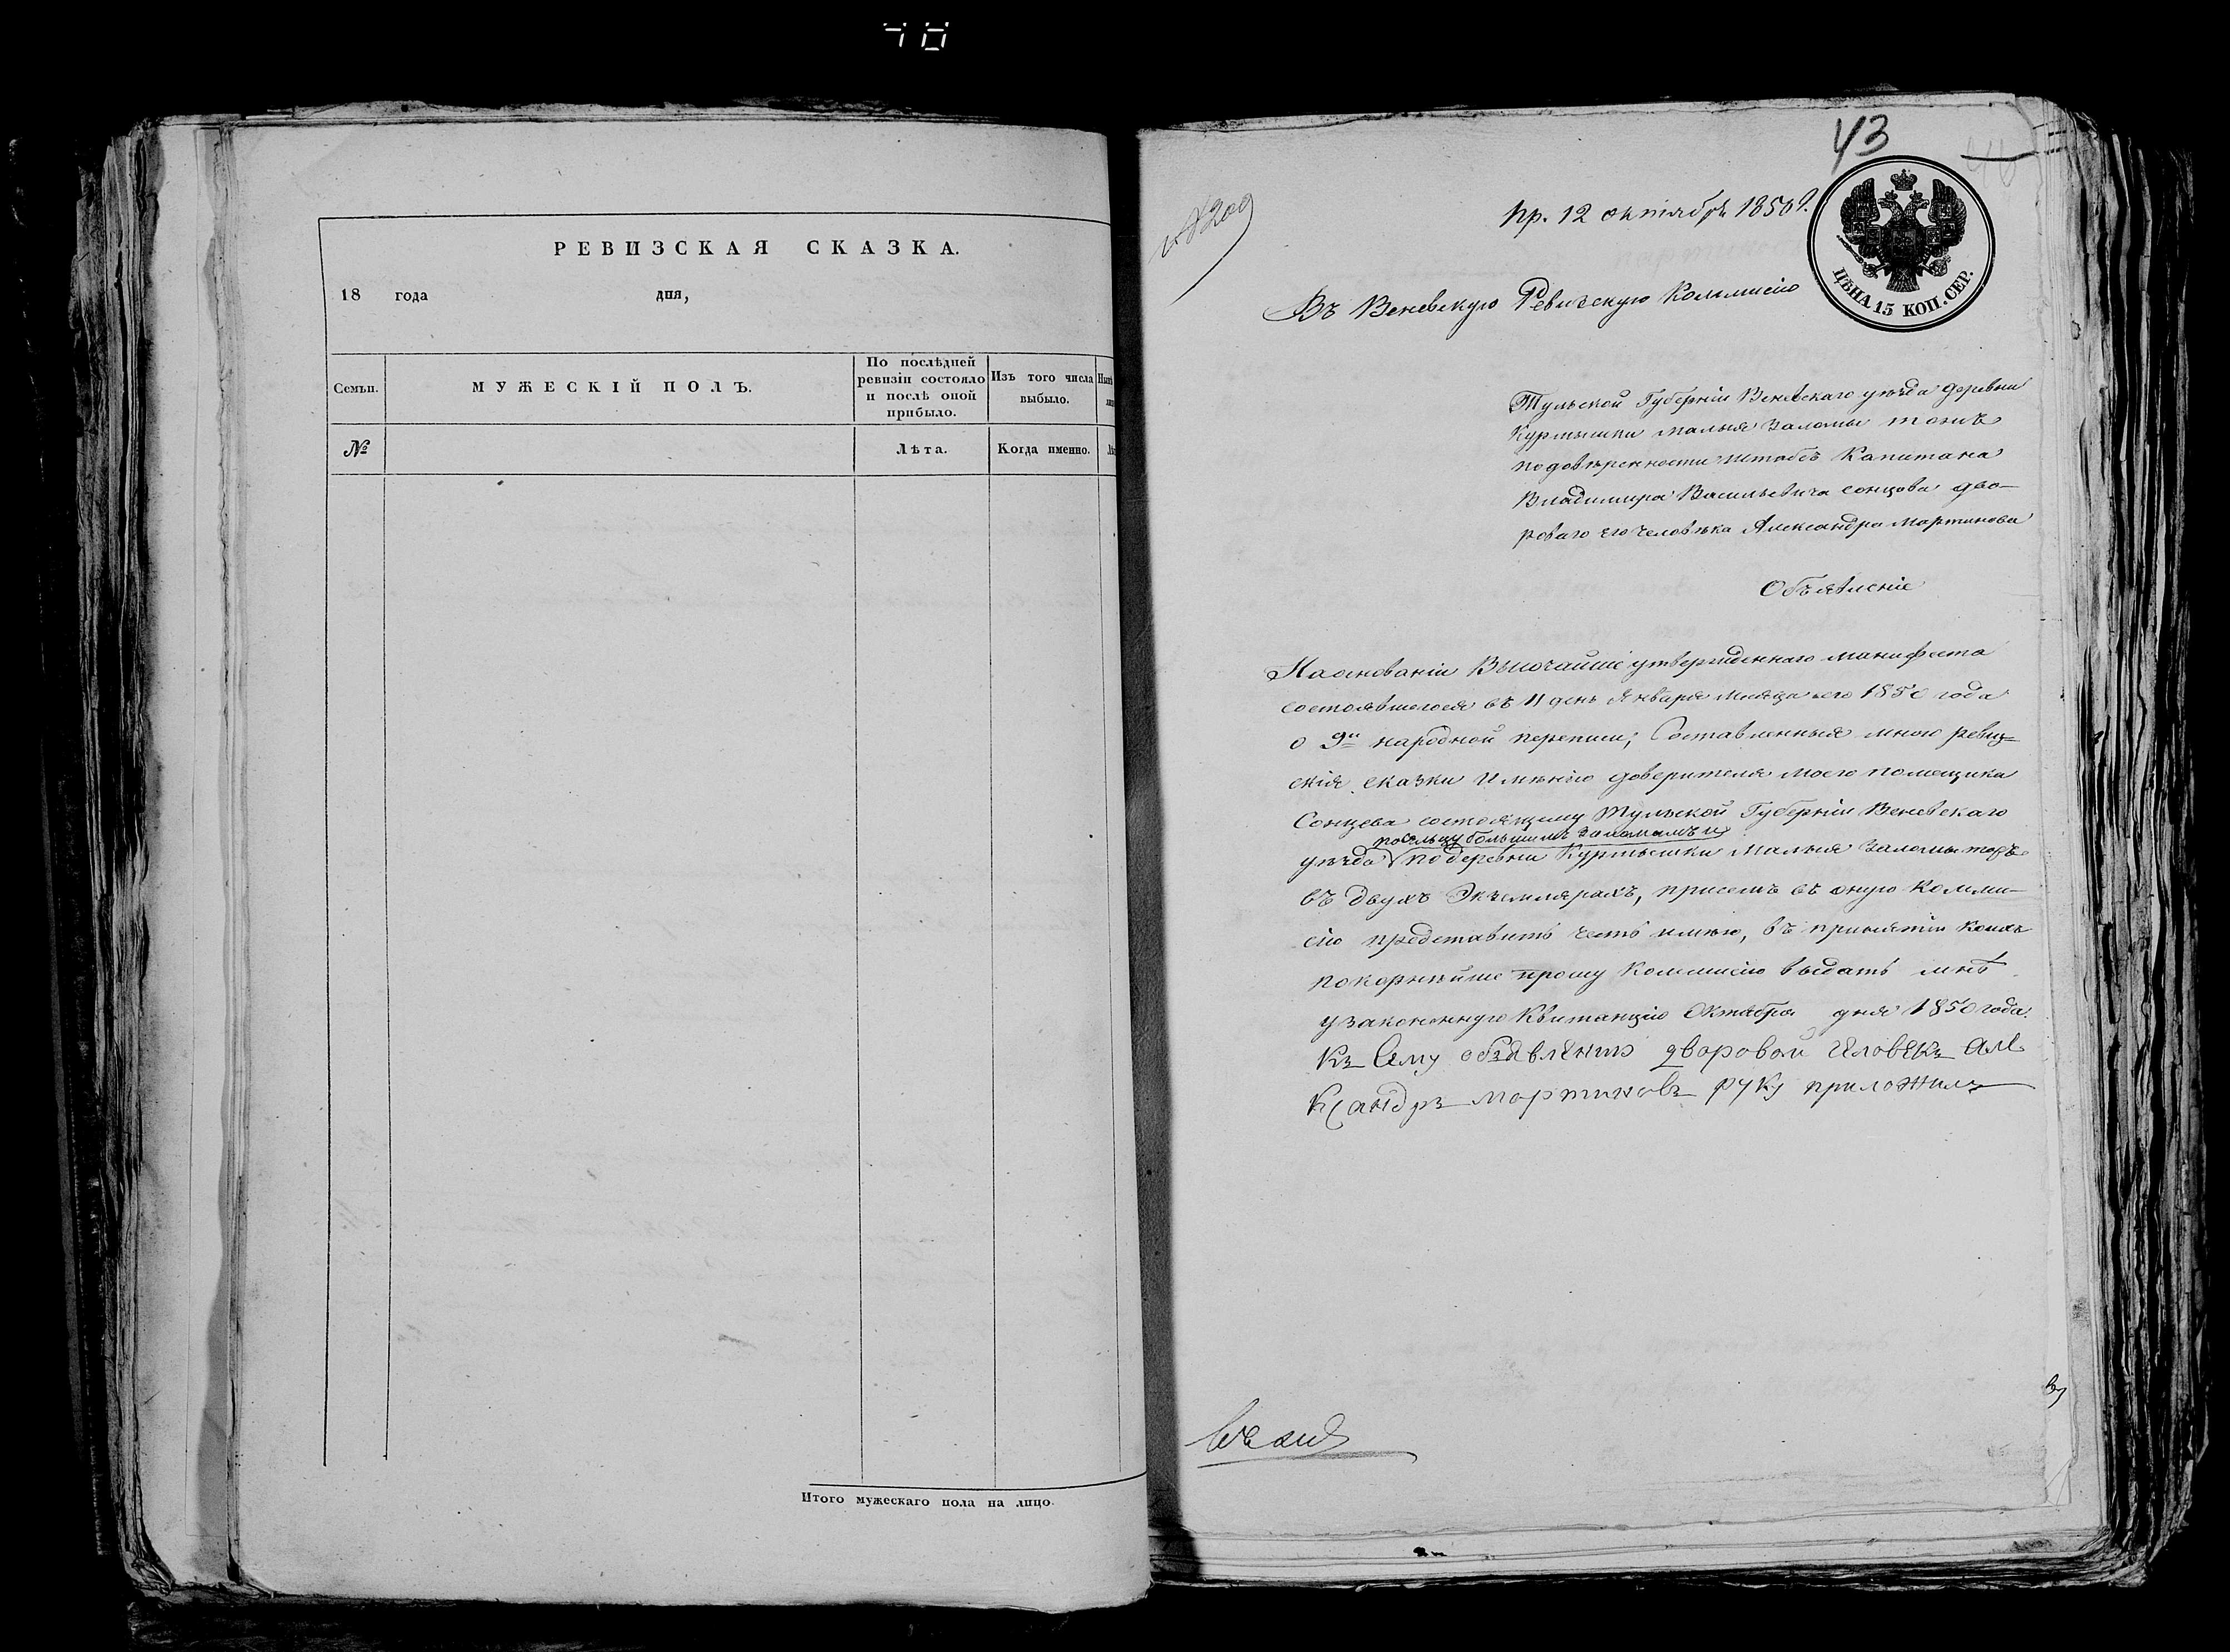 РЕВИЗСКАЯ СКАЗКА.
18 года дня,
Семьи.
МУЖЕСКІЙ ПОЛЪ.
По послѣдней ревизіи состояло и послѣ оной прибыло.
Изъ того числа выбыло.
№
Лѣта.
Когда именно.
Итого мужескаго пола на лицо.
43
№ 209
пр. 12 октября 1850 г.
ЦѢНА 15 КОП. СЕР.
Въ Веневскую Ревизскую Коммисію
Тульской Губерніи Веневскаго уѣзда деревни
Куртышки малыя Заломы тожъ
по довѣренности Штабсъ Капитана
Владимира Васильевича Сонцова дво-
роваго его человѣка Александра Мартинова
Объявленіе
На основаніи Высочайше утвержденнаго манифеста
состоявшегося въ 11 день Января месяца сего 1850 года
о 9й народной переписи; Составленныя мною ревиз=
скія сказки имѣнію доверителя моего помещика
Сонцева состоящему Тульской Губерніи Веневскаго
по сельцу большимъ Заломамъ и
уѣзда по деревни Куртышки малыя Заломы тожъ
въ двухъ Экземлярахъ, присемъ въ оную Комми-
сію представить честь имѣю, въ принятіи коихъ
покорнѣйше прошу Коммисію выдать мнѣ
узаконенную Квитанцію Октября дня 1850 года.
Къ Сему объявленію дворовой человекъ Але
ксандръ Мартиновъ руку приложилъ